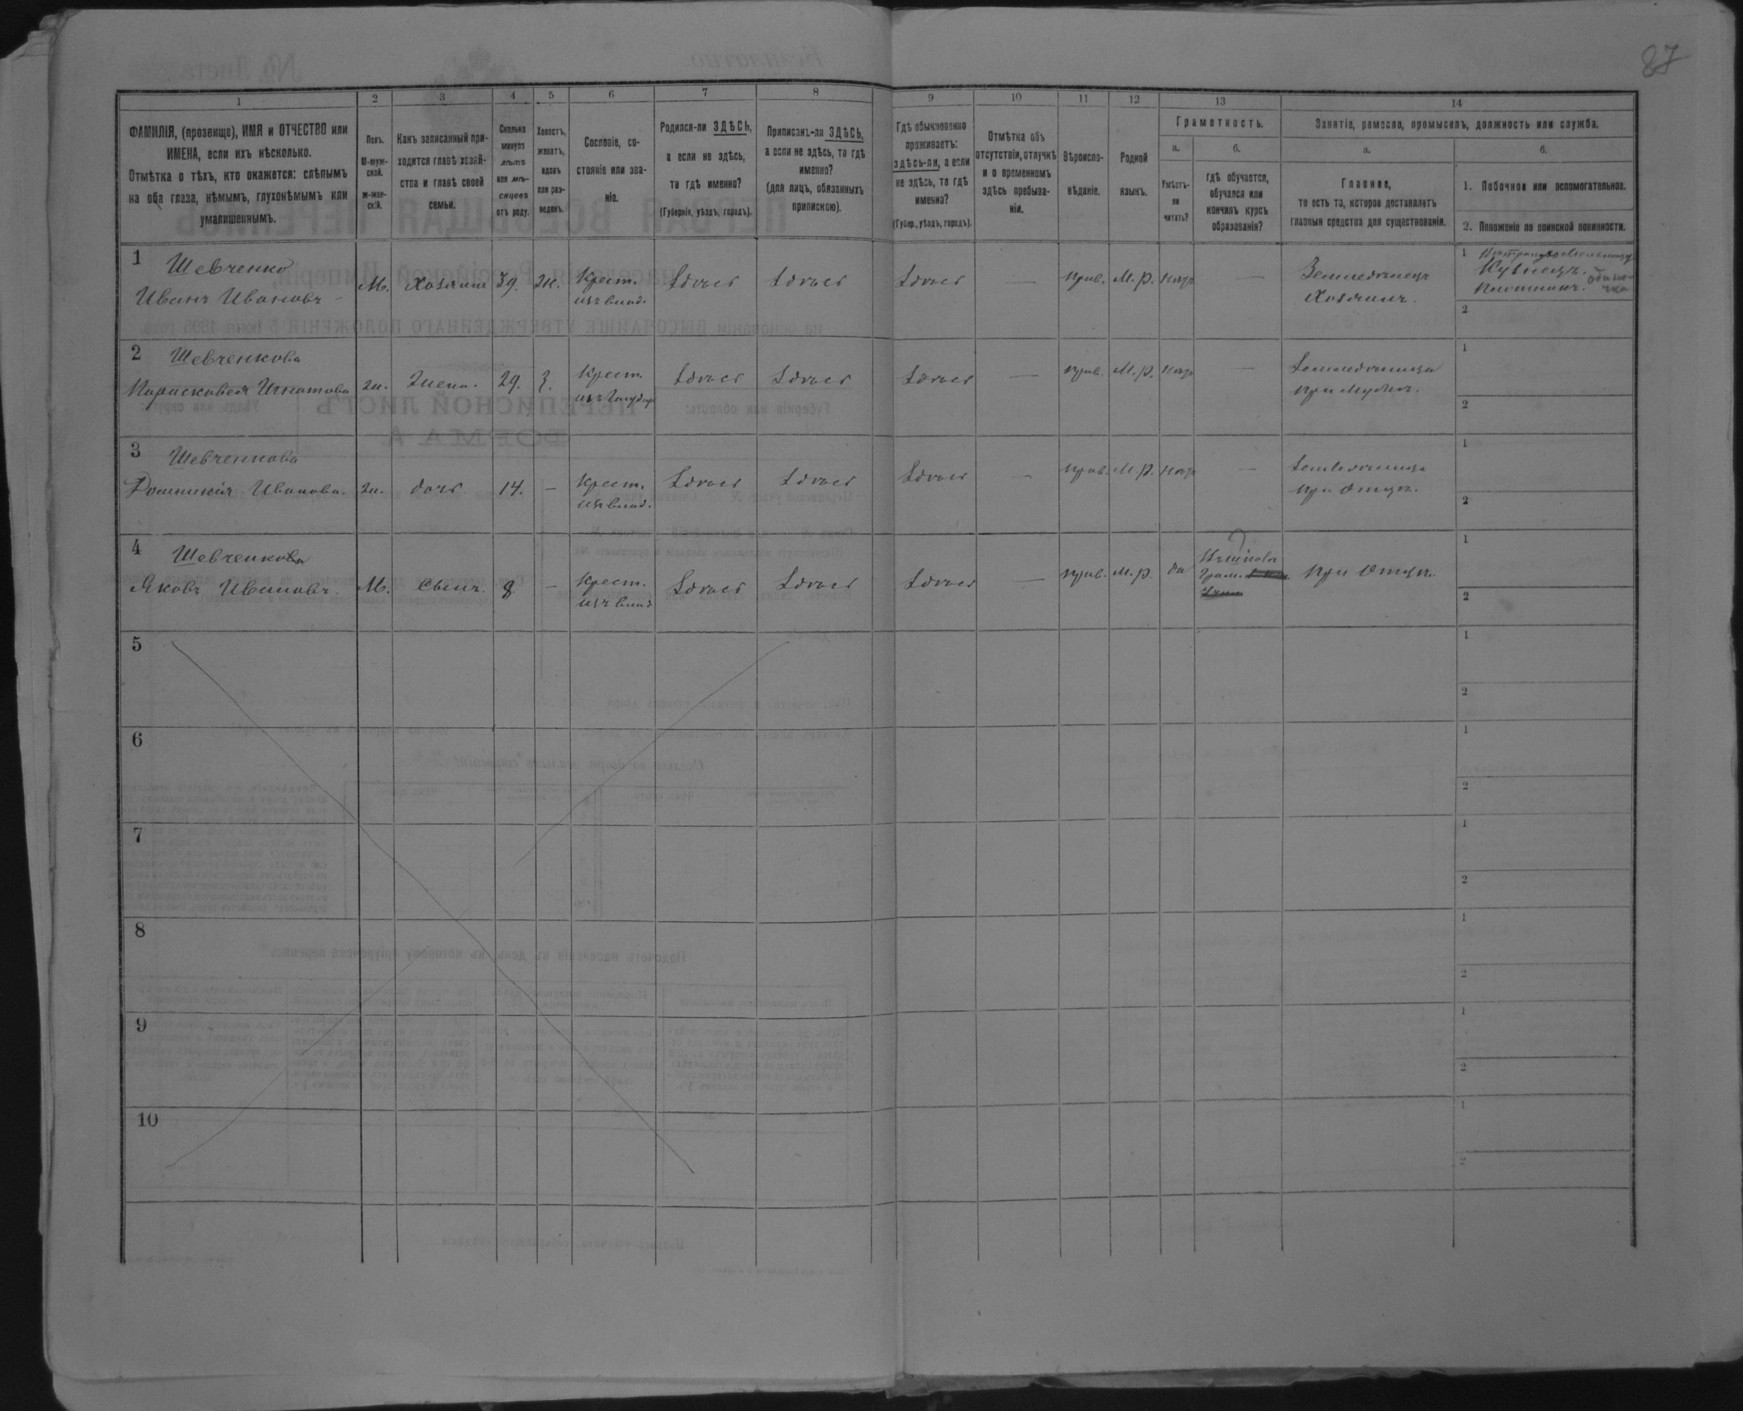 87
1 2 3 4 5 6 7 8 9 10 11 12 13 14
ФАМИЛІЯ, (прозвище), ИМЯ и ОТЧЕСТВО или
ИМЕНА, если ихъ нѣсколько.
Отмѣтка о тѣхъ, кто окажется: слѣпымъ
на оба глаза, нѣмымъ, глухонѣмымъ или
умалишеннымъ.
Полъ.
М-муж-
ской.
ж-жен-
скій.
Какъ записанный при-
ходится главѣ хозяй-
ства и главѣ своей
семьи.
Сколько
минуло
лѣтъ
или мѣ-
сяцевъ
отъ роду.
Холостъ,
женатъ,
вдовъ
или раз-
веденъ.
Сословіе, со-
стояніе или зва-
ніе.
Родился-ли ЗДѢСЬ,
а если не здѣсь,
то гдѣ именно?
(Губернія, уѣздъ, городъ).
Приписанъ-ли ЗДѢСЬ,
а если не здѣсь, то гдѣ
именно?
(для лицъ, обязанныхъ
припискою).
Гдѣ обыкновенно
проживаетъ:
здѣсь-ли, а если
не здѣсь, то гдѣ
именно?
(Губер., уѣздъ, городъ).
Отмѣтка объ
отсутствіи, отлучкѣ
и о временномъ
здѣсь пребыва-
ніи.
Вѣроиспо-
вѣданіе.
Родной
языкъ.
Грамотность.
а.
Умѣетъ-
ли
читать?
б.
гдѣ обучается,
обучался или
кончилъ курсъ
образованія?
Занятіе, ремесло, промыселъ, должность или служба.
а.
Главное,
то есть то, которое доставляетъ
главныя средства для существованія.
б.
1. Побочное или вспомогательное.
2. Положеніе по воинской повинности.
1 Шевченко
Иванъ Ивановъ
М. Хозяинъ 39. Ж. Крест.
изъ влад.
Здѣсь Здѣсь Здѣсь — Прав. М. р. —
Земледѣлецъ
Хозяинъ.
1
Кузнецъ.
Плотникъ.
2
2 Шевченкова
Параскевея Игнатова
Ж. Жена. 29. З. Крест.
Здѣсь Здѣсь Здѣсь — Прав. М. р. —
Земледѣлица
при Мужѣ.
1
2
3 Шевченкова
Доминикія Иванова.
Ж. дочь 14. — Крест.
изъ влад.
Здѣсь Здѣсь Здѣсь — Прав. М. р. —
Земледѣлица
при Отцѣ.
1
2
4 Шевченко
Яковъ Ивановъ.
М. Сынъ. 8 — Крест.
изъ влад.
Здѣсь Здѣсь Здѣсь — Прав. М. р. да
при Отцѣ.
1
2
5
1
2
6
1
2
7
1
2
8
1
2
9
1
2
10
1
2